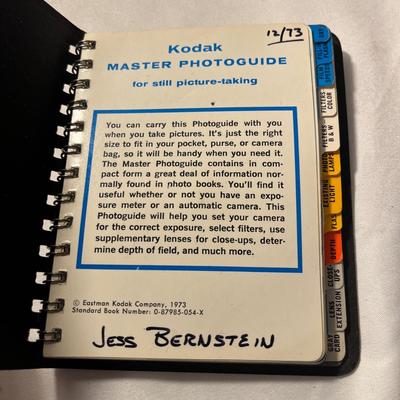 12/73
Kodak
MASTER PHOTOGUIDE
for still picture-taking
You can carry this Photoguide with you
when you take pictures. It's just the right
size to fit in your pocket, purse, or camera
bag, so it will be handy when you need it.
The Master Photoguide contains in com-
pact form a great deal of information nor-
mally found in photo books. You'll find it
useful whether or not you have an expo-
sure meter or an automatic camera. This
Photoguide will help you set your camera
for the correct exposure, select filters, use
supplementary lenses for close-ups, deter-
mine depth of field, and much more.
© Eastman Kodak Company, 1973
Standard Book Number: 0-87985-054-X
JESS BERNSTEIN
FILM
SPEEDS
FILTERS
COLOR
FILTERS
B & W
PHOTO
LAMPS
EXISTING
LIGHT
FLASH
DEPTH
CLOSE-
UPS
LENS
EXTENSION
GRAY
CARD